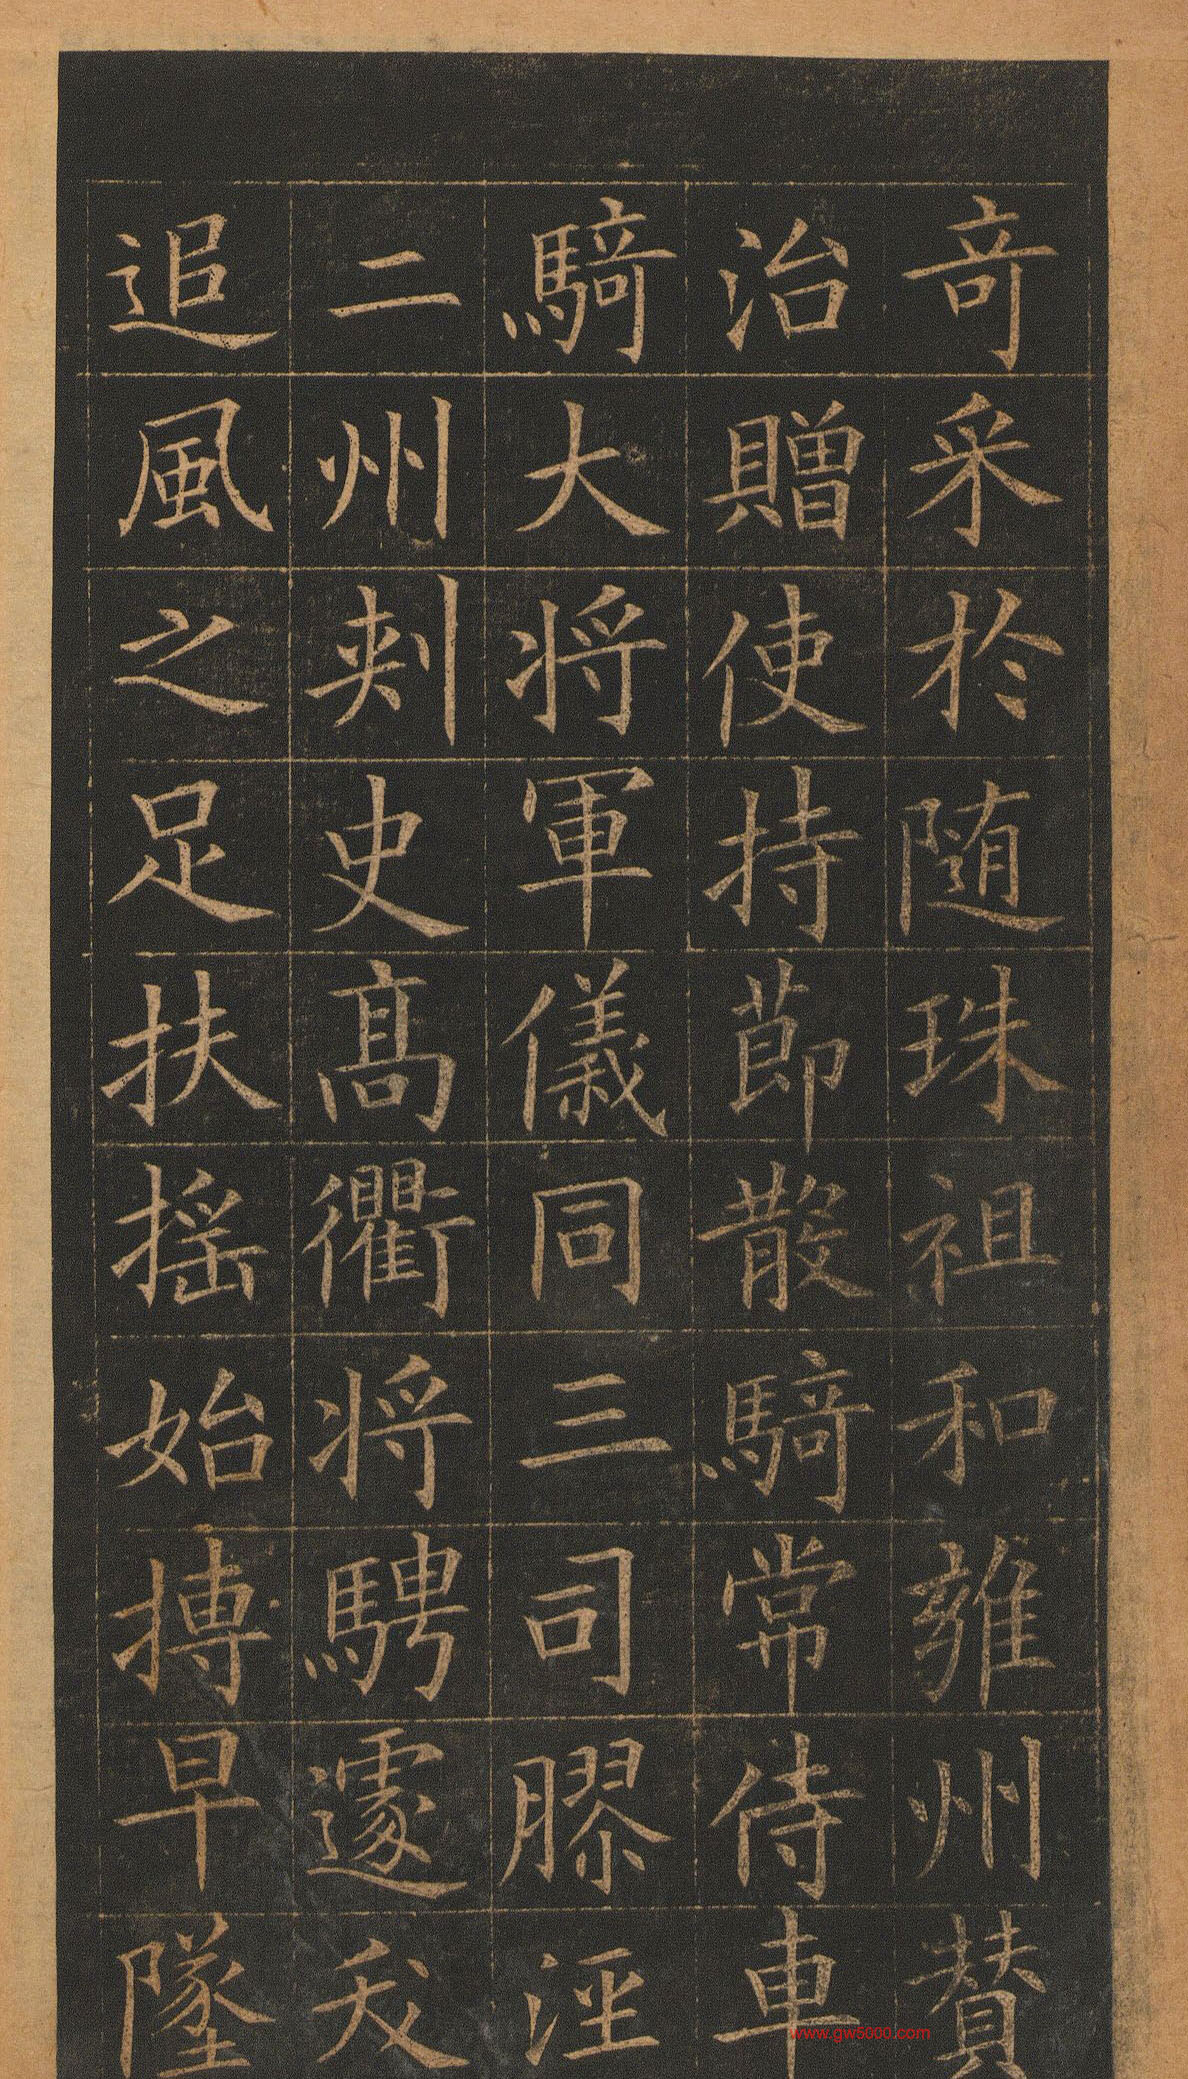 竒采於随珠祖和雍州賛
治贈使持節散騎常侍車
騎大将軍儀同三司膠涇
二州刾史髙衢将騁遽夭
追風之足扶摇始搏早墜
www.gw5000.com